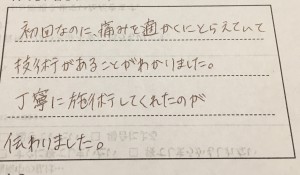 初回なのに、痛みを適かくにとらえていて
技術があることがわかりました。
丁寧に施術してくれたのが
伝わりました。